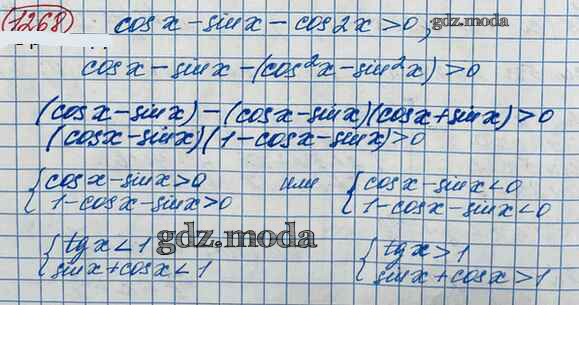 1268 cosx - sinx - cos2x > 0,
gdz.moda
cosx - sinx - (cos²x - sin²x) > 0
(cosx - sinx) - (cosx - sinx)(cosx + sinx) > 0
(cosx - sinx)(1 - cosx - sinx) > 0
{cosx - sinx > 0 или {cosx - sinx < 0
1 - cosx - sinx > 0 1 - cosx - sinx < 0
{tgx < 1 {tgx > 1
gdz.moda
sinx + cosx < 1 sinx + cosx > 1